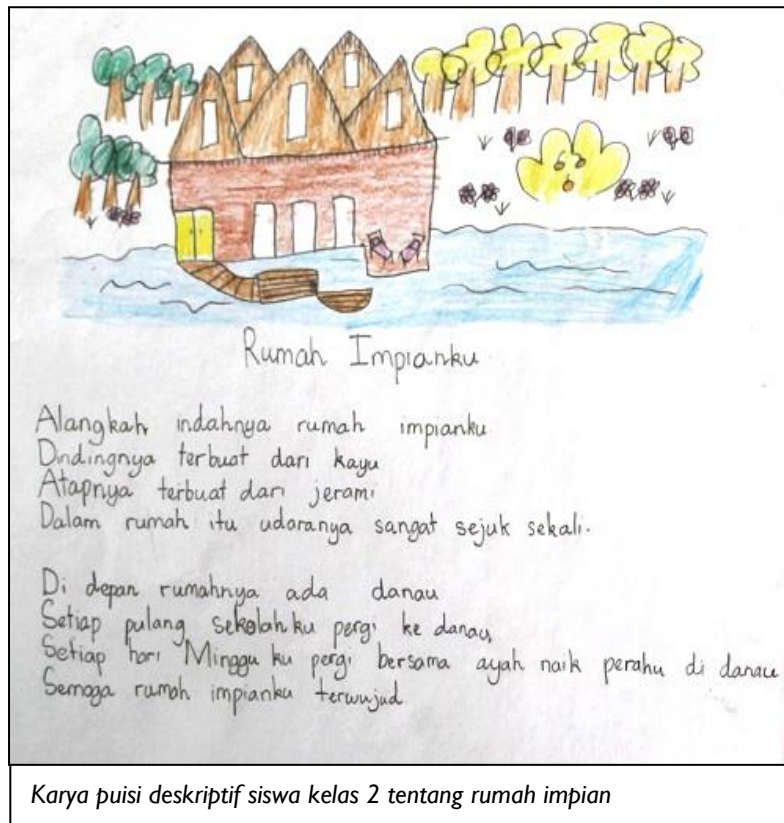 Rumah Impianku
Alangkah indahnya rumah impianku
Dindingnya terbuat dari kayu
Atapnya terbuat dari jerami
Dalam rumah itu udaranya sangat sejuk sekali.
Di depan rumahnya ada danau
Setiap pulang sekolah ku pergi ke danau,
Setiap hari Minggu ku pergi bersama ayah naik perahu di danau
Semoga rumah impianku terwujud.
Karya puisi deskriptif siswa kelas 2 tentang rumah impian